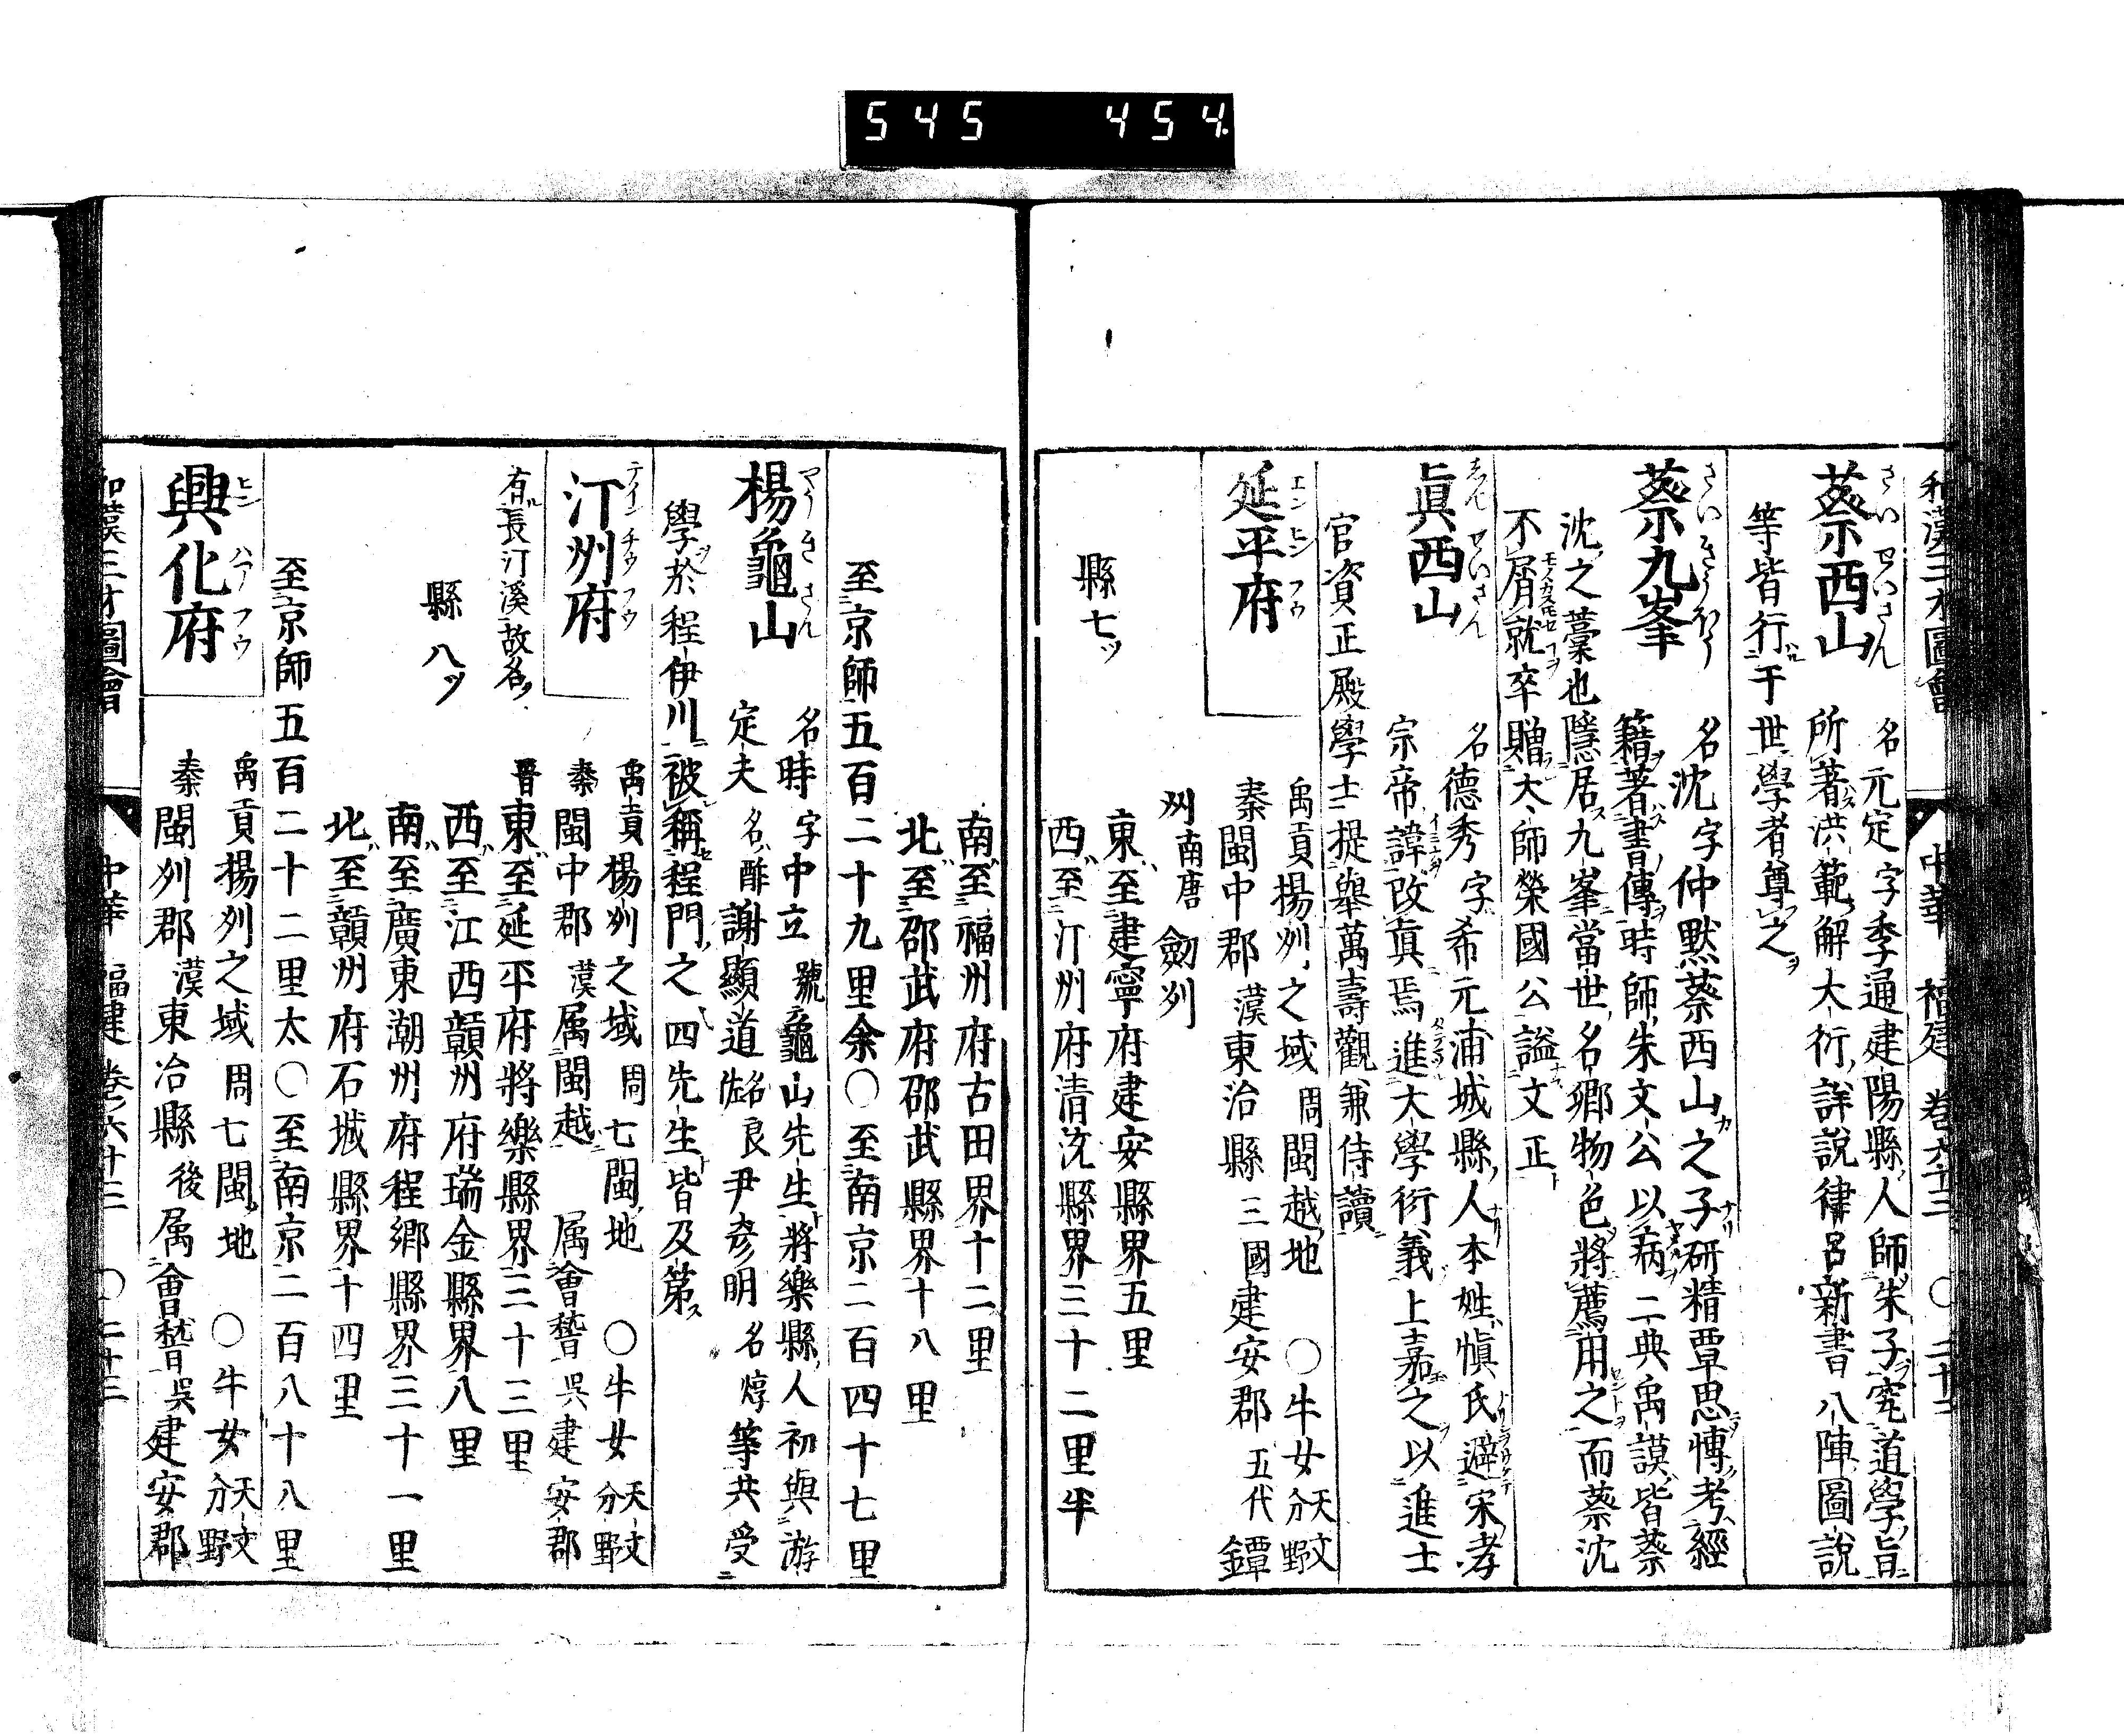 545 454
和漢三才圖會 中華 福建 卷六十三 〇二十二
蔡西山 名元定字季通建陽縣人師朱子究道學旨
所著洪範解大衍詳說律呂新書八陣圖說
等皆行于世學者尊之
蔡九峯 名沈字仲默蔡西山之子研精覃思慱考經
籍著書傳時師朱文公以病二典禹謨皆蔡
沈之藁也隱居九峯當世名鄉物色將薦用之而蔡沈
不屑就卒贈大師榮國公謚文正
眞西山 名德秀字希元浦城縣人本姓愼氏避宋孝
宗帝諱改眞焉進大學衍義上嘉之以進士
官資正殿學士提舉萬壽觀兼侍讀
延平府 禹貢揚州之域周閩越地 〇牛女天文分野
秦閩中郡漢東治縣三國建安郡五代鐔
州南唐劒州
縣七ツ
東至建寧府建安縣界五里
西至汀州府清流縣界三十二里半
南至福州府古田界十二里
北至邵武府邵武縣界十八里
至京師五百二十九里余〇至南京二百四十七里
楊龜山 名時字中立號龜山先生將樂縣人初與游
定夫名酢謝顯道名良佐尹彥明名焞等共受
學於程伊川被稱程門之四先生皆及第
汀州府 禹貢楊州之域周七閩地 〇牛女天文分野
秦閩中郡漢属閩越 属會稽吳建安郡
晋東至延平府將樂縣界三十三里
有長汀溪故名
西至江西贛州府瑞金縣界八里
縣八ツ
南至廣東潮州府程鄉縣界三十一里
北至贛州府石城縣界十四里
至京師五百二十二里太〇至南京二百八十八里
興化府 禹貢揚州之域周七閩地 〇牛女天文分野
秦閩州郡漢東冶縣後属會稽吳建安郡
和漢三才圖會 中華 福建 卷六十三 〇二十三